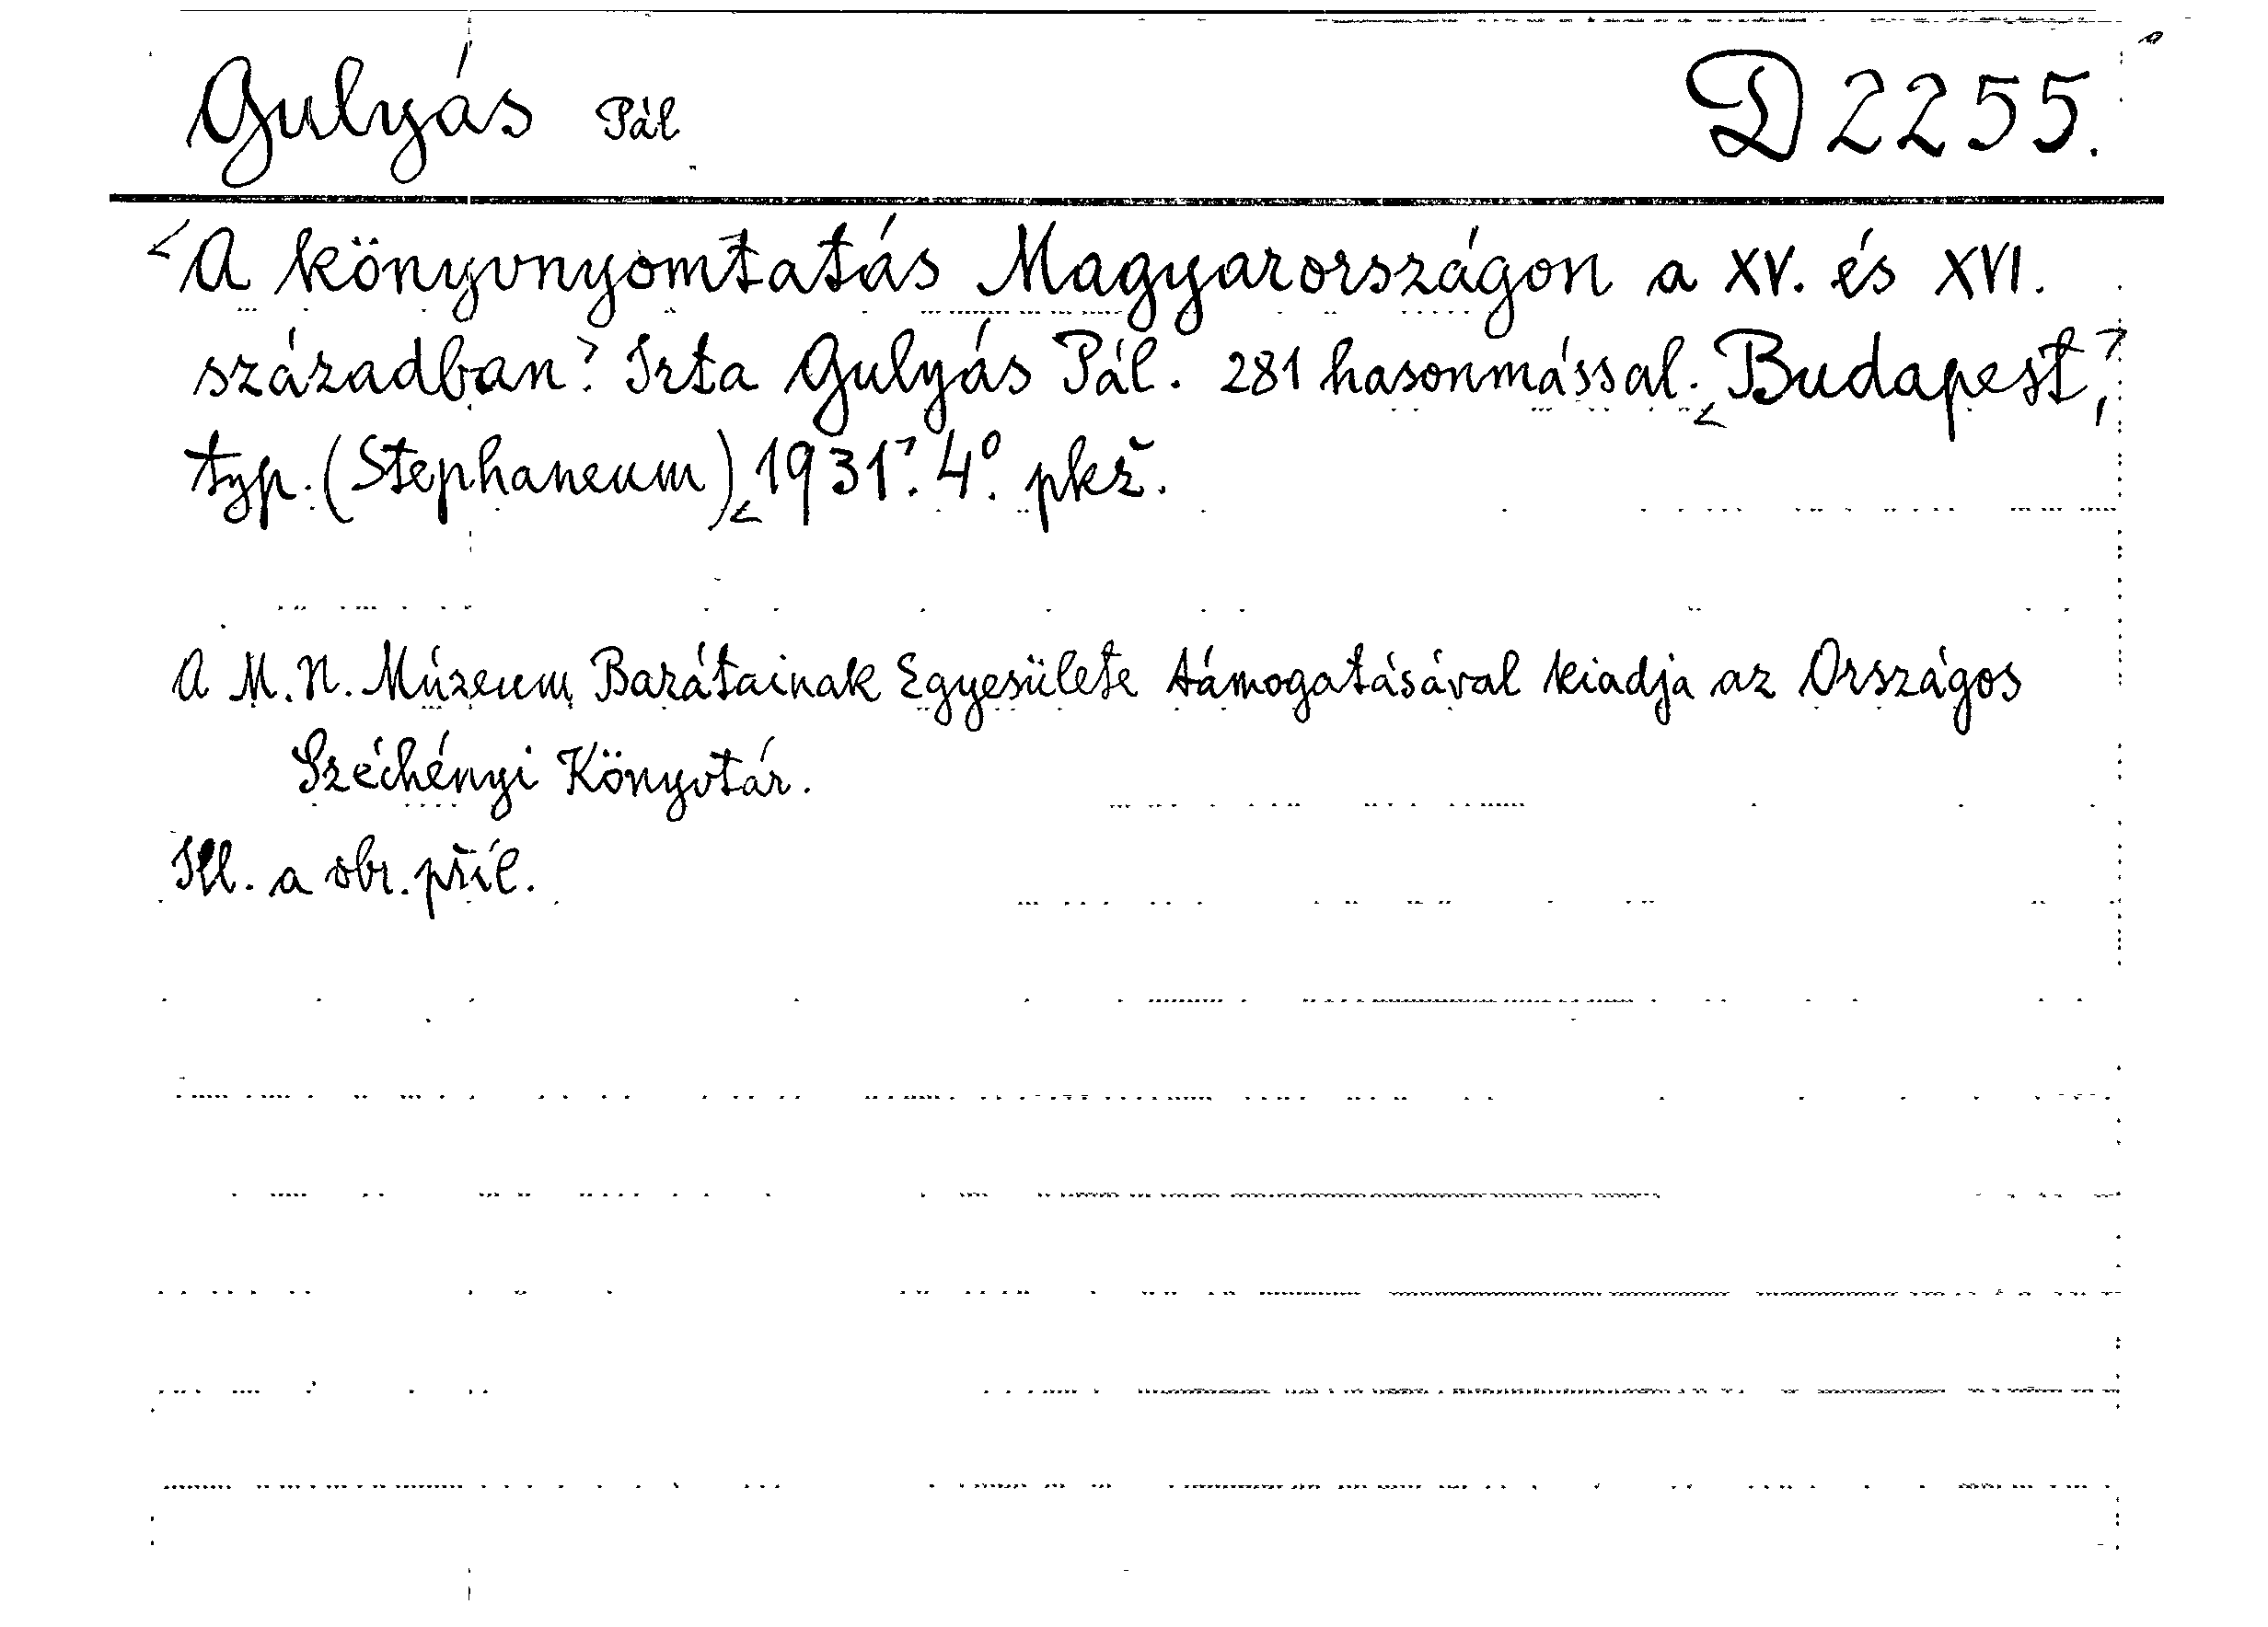 Gulyás Pál D 2255.
<A könyvnyomtatás Magyarországon a XV. és XVI.
században>. Irta Gulyás Pál. 281 hasonmással. <Budapest>,
typ. (Stephaneum) <1931>. 4°. pkž.
A M. N. Múzeum Barátainak Egyesülete támogatásával kiadja az Országos
Széchényi Könyvtár.
Ill. a obr. příl.